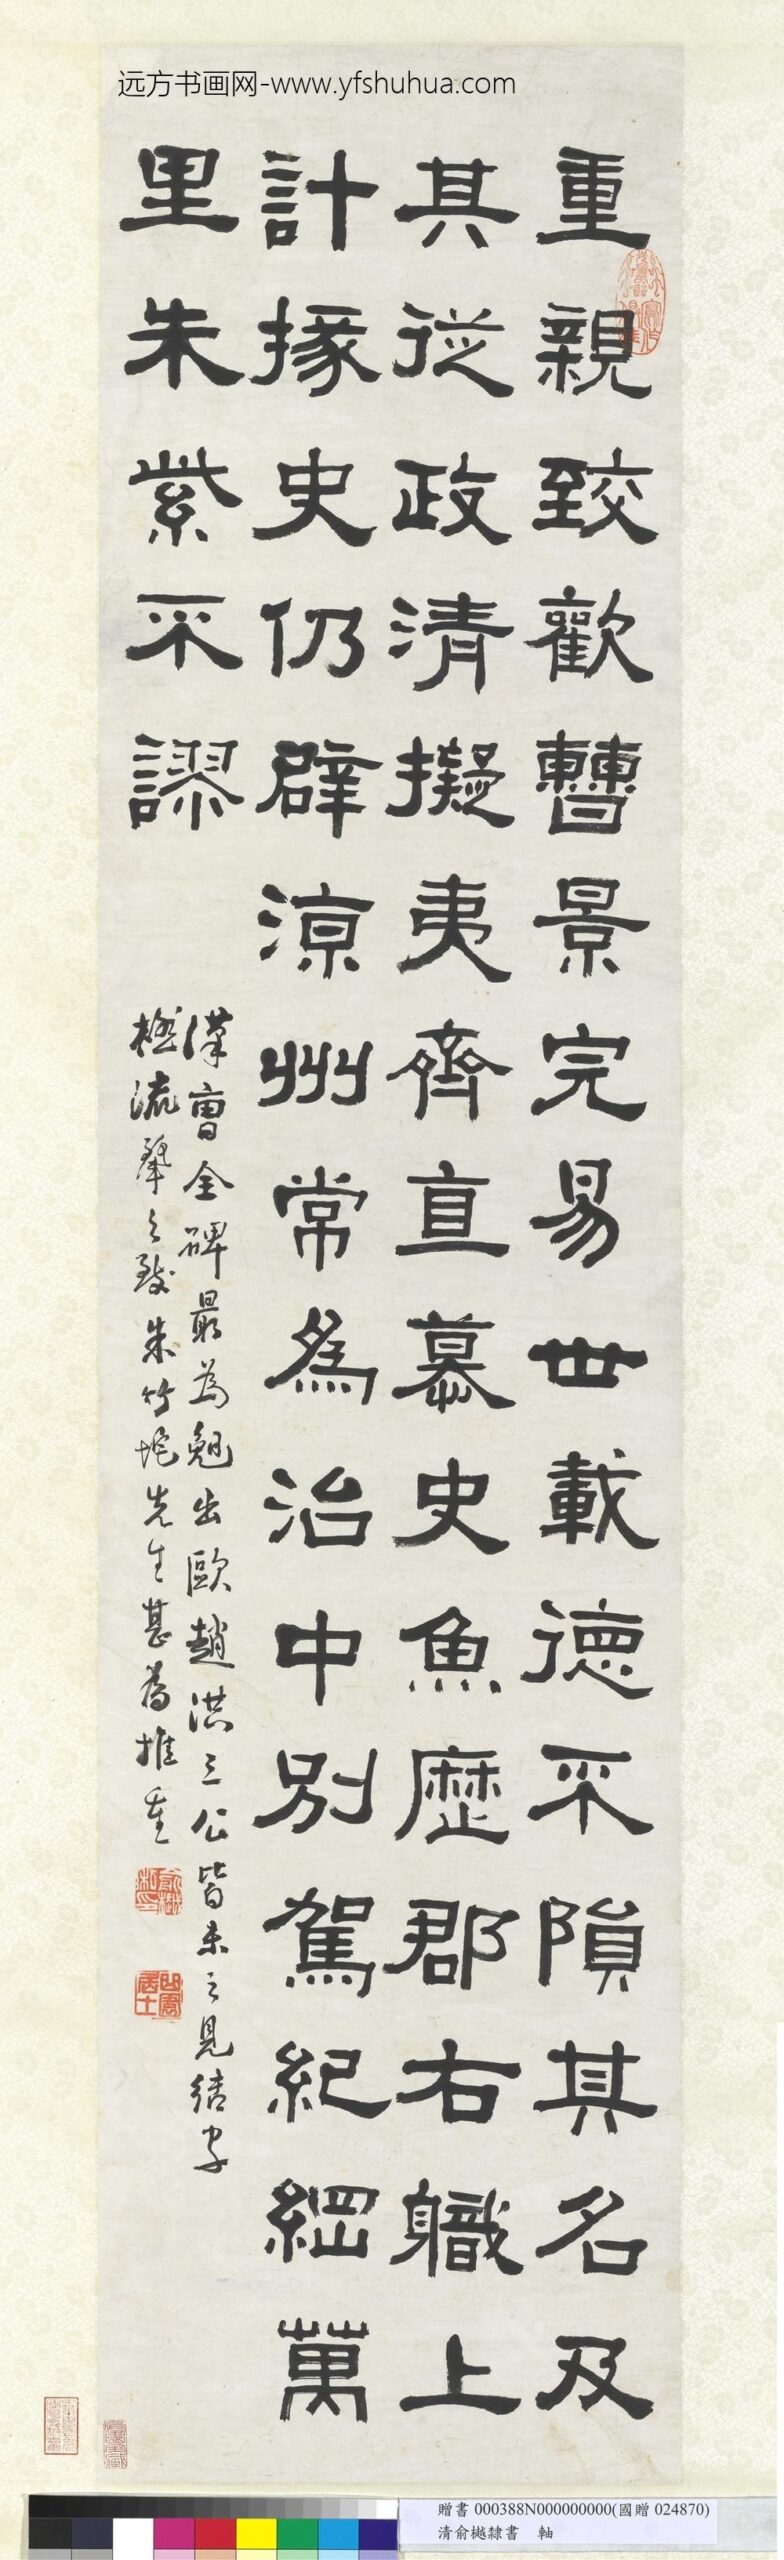 远方书画网-www.yfshuhua.com
重親致歡曹景完易世載德不隕其名及
其從政清擬夷齊直慕史魚歷郡右職上
計掾史仍辟涼州常為治中別駕紀綱萬
里朱紫不謬
漢曹全碑最為勉出歐趙洪三公皆未之見結字
極流麗之致朱竹垞先生甚為推重
贈書 000388N000000000(國贈 024870)
清俞樾隸書 軸